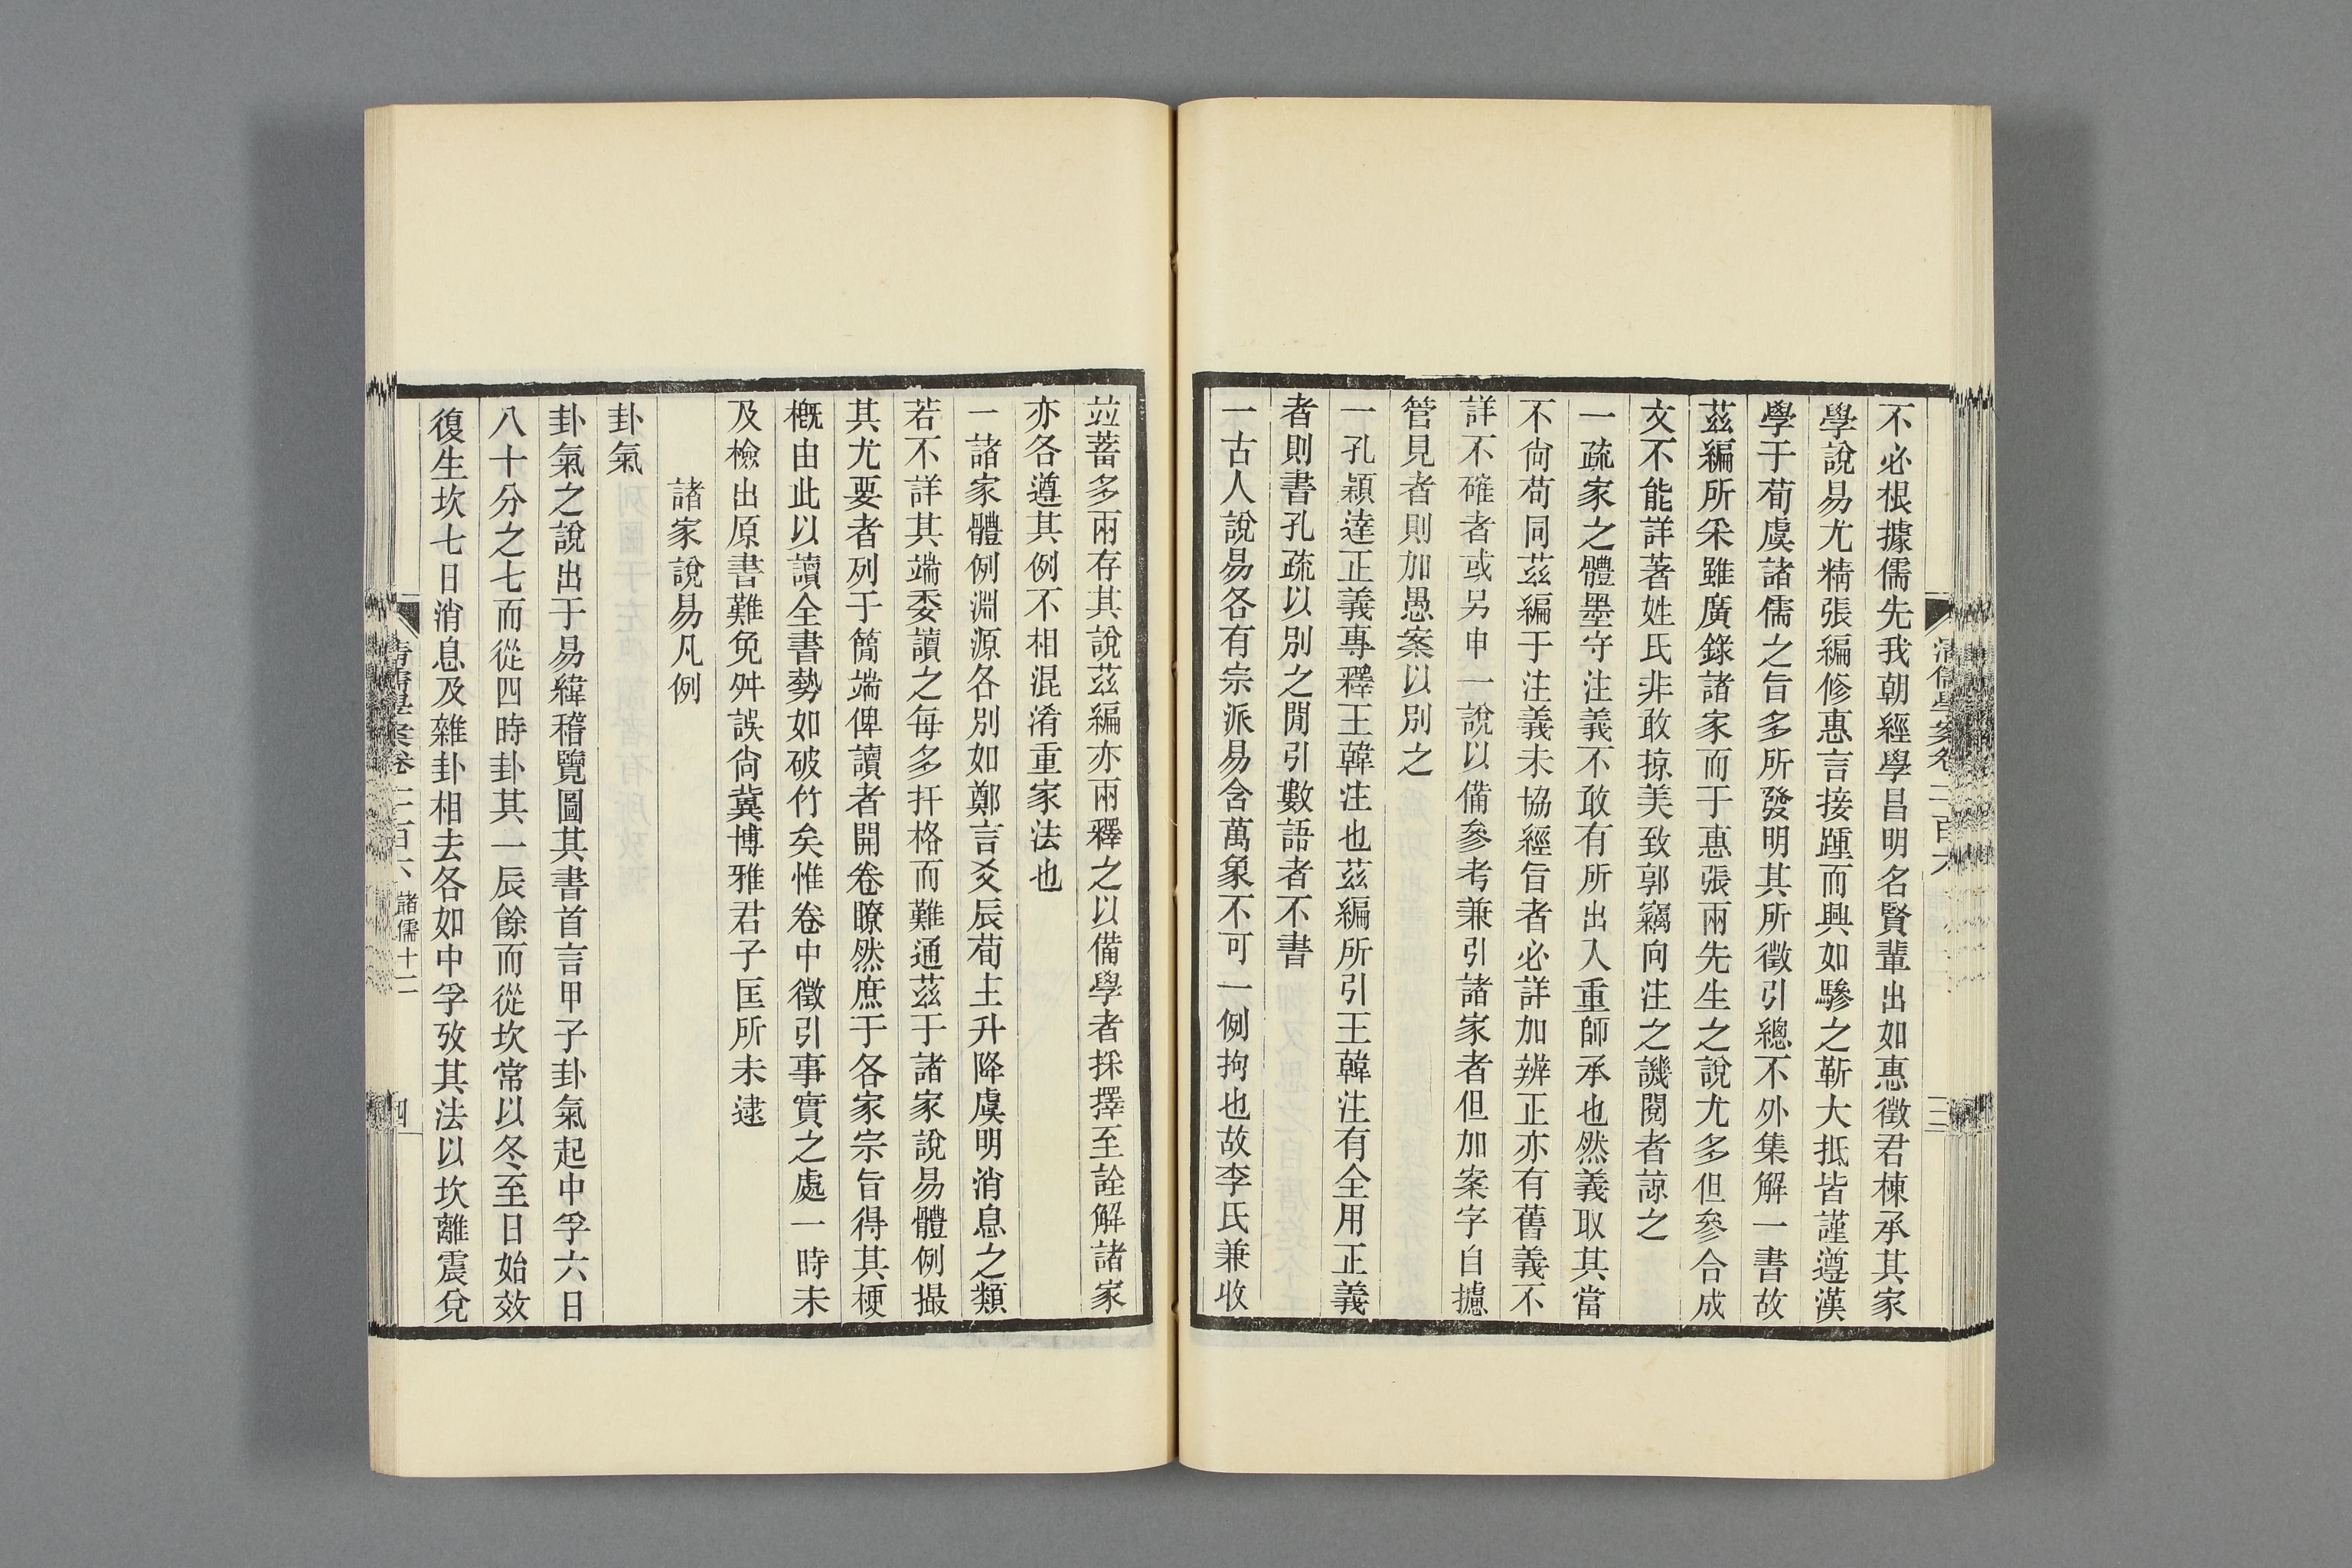 不必根據儒先我朝經學昌明名賢輩出如惠徵君棟承其家
學說易尤精張編修惠言接踵而興如驂之靳大抵皆謹遵漢
學于荀虞諸儒之旨多所發明其所徵引總不外集解一書故
茲編所采雖廣錄諸家而于惠張兩先生之說尤多但參合成
文不能詳著姓氏非敢掠美致郭竊向注之譏閱者諒之
一疏家之體墨守注義不敢有所出入重師承也然義取其當
不尙苟同茲編于注義未協經旨者必詳加辨正亦有舊義不
詳不確者或另申一說以備參考兼引諸家者但加案字自攄
管見者則加愚案以別之
一孔穎達正義專釋王韓注也茲編所引王韓注有全用正義
者則書孔疏以別之閒引數語者不書
一古人說易各有宗派易含萬象不可一例拘也故李氏兼收
清儒學案卷二百六
三
竝蓄多兩存其說茲編亦兩釋之以備學者採擇至詮解諸家
亦各遵其例不相混淆重家法也
一諸家體例淵源各別如鄭言爻辰荀主升降虞明消息之類
若不詳其端委讀之每多扞格而難通茲于諸家說易體例撮
其尤要者列于簡端俾讀者開卷瞭然庶于各家宗旨得其梗
概由此以讀全書勢如破竹矣惟卷中徵引事實之處一時未
及檢出原書難免舛誤尙冀博雅君子匡所未逮
諸家說易凡例
卦氣
卦氣之說出于易緯稽覽圖其書首言甲子卦氣起中孚六日
八十分之七而從四時卦其一辰餘而從坎常以冬至日始效
復生坎七日消息及雜卦相去各如中孚攷其法以坎離震兌
清儒學案卷二百六 諸儒十二
四